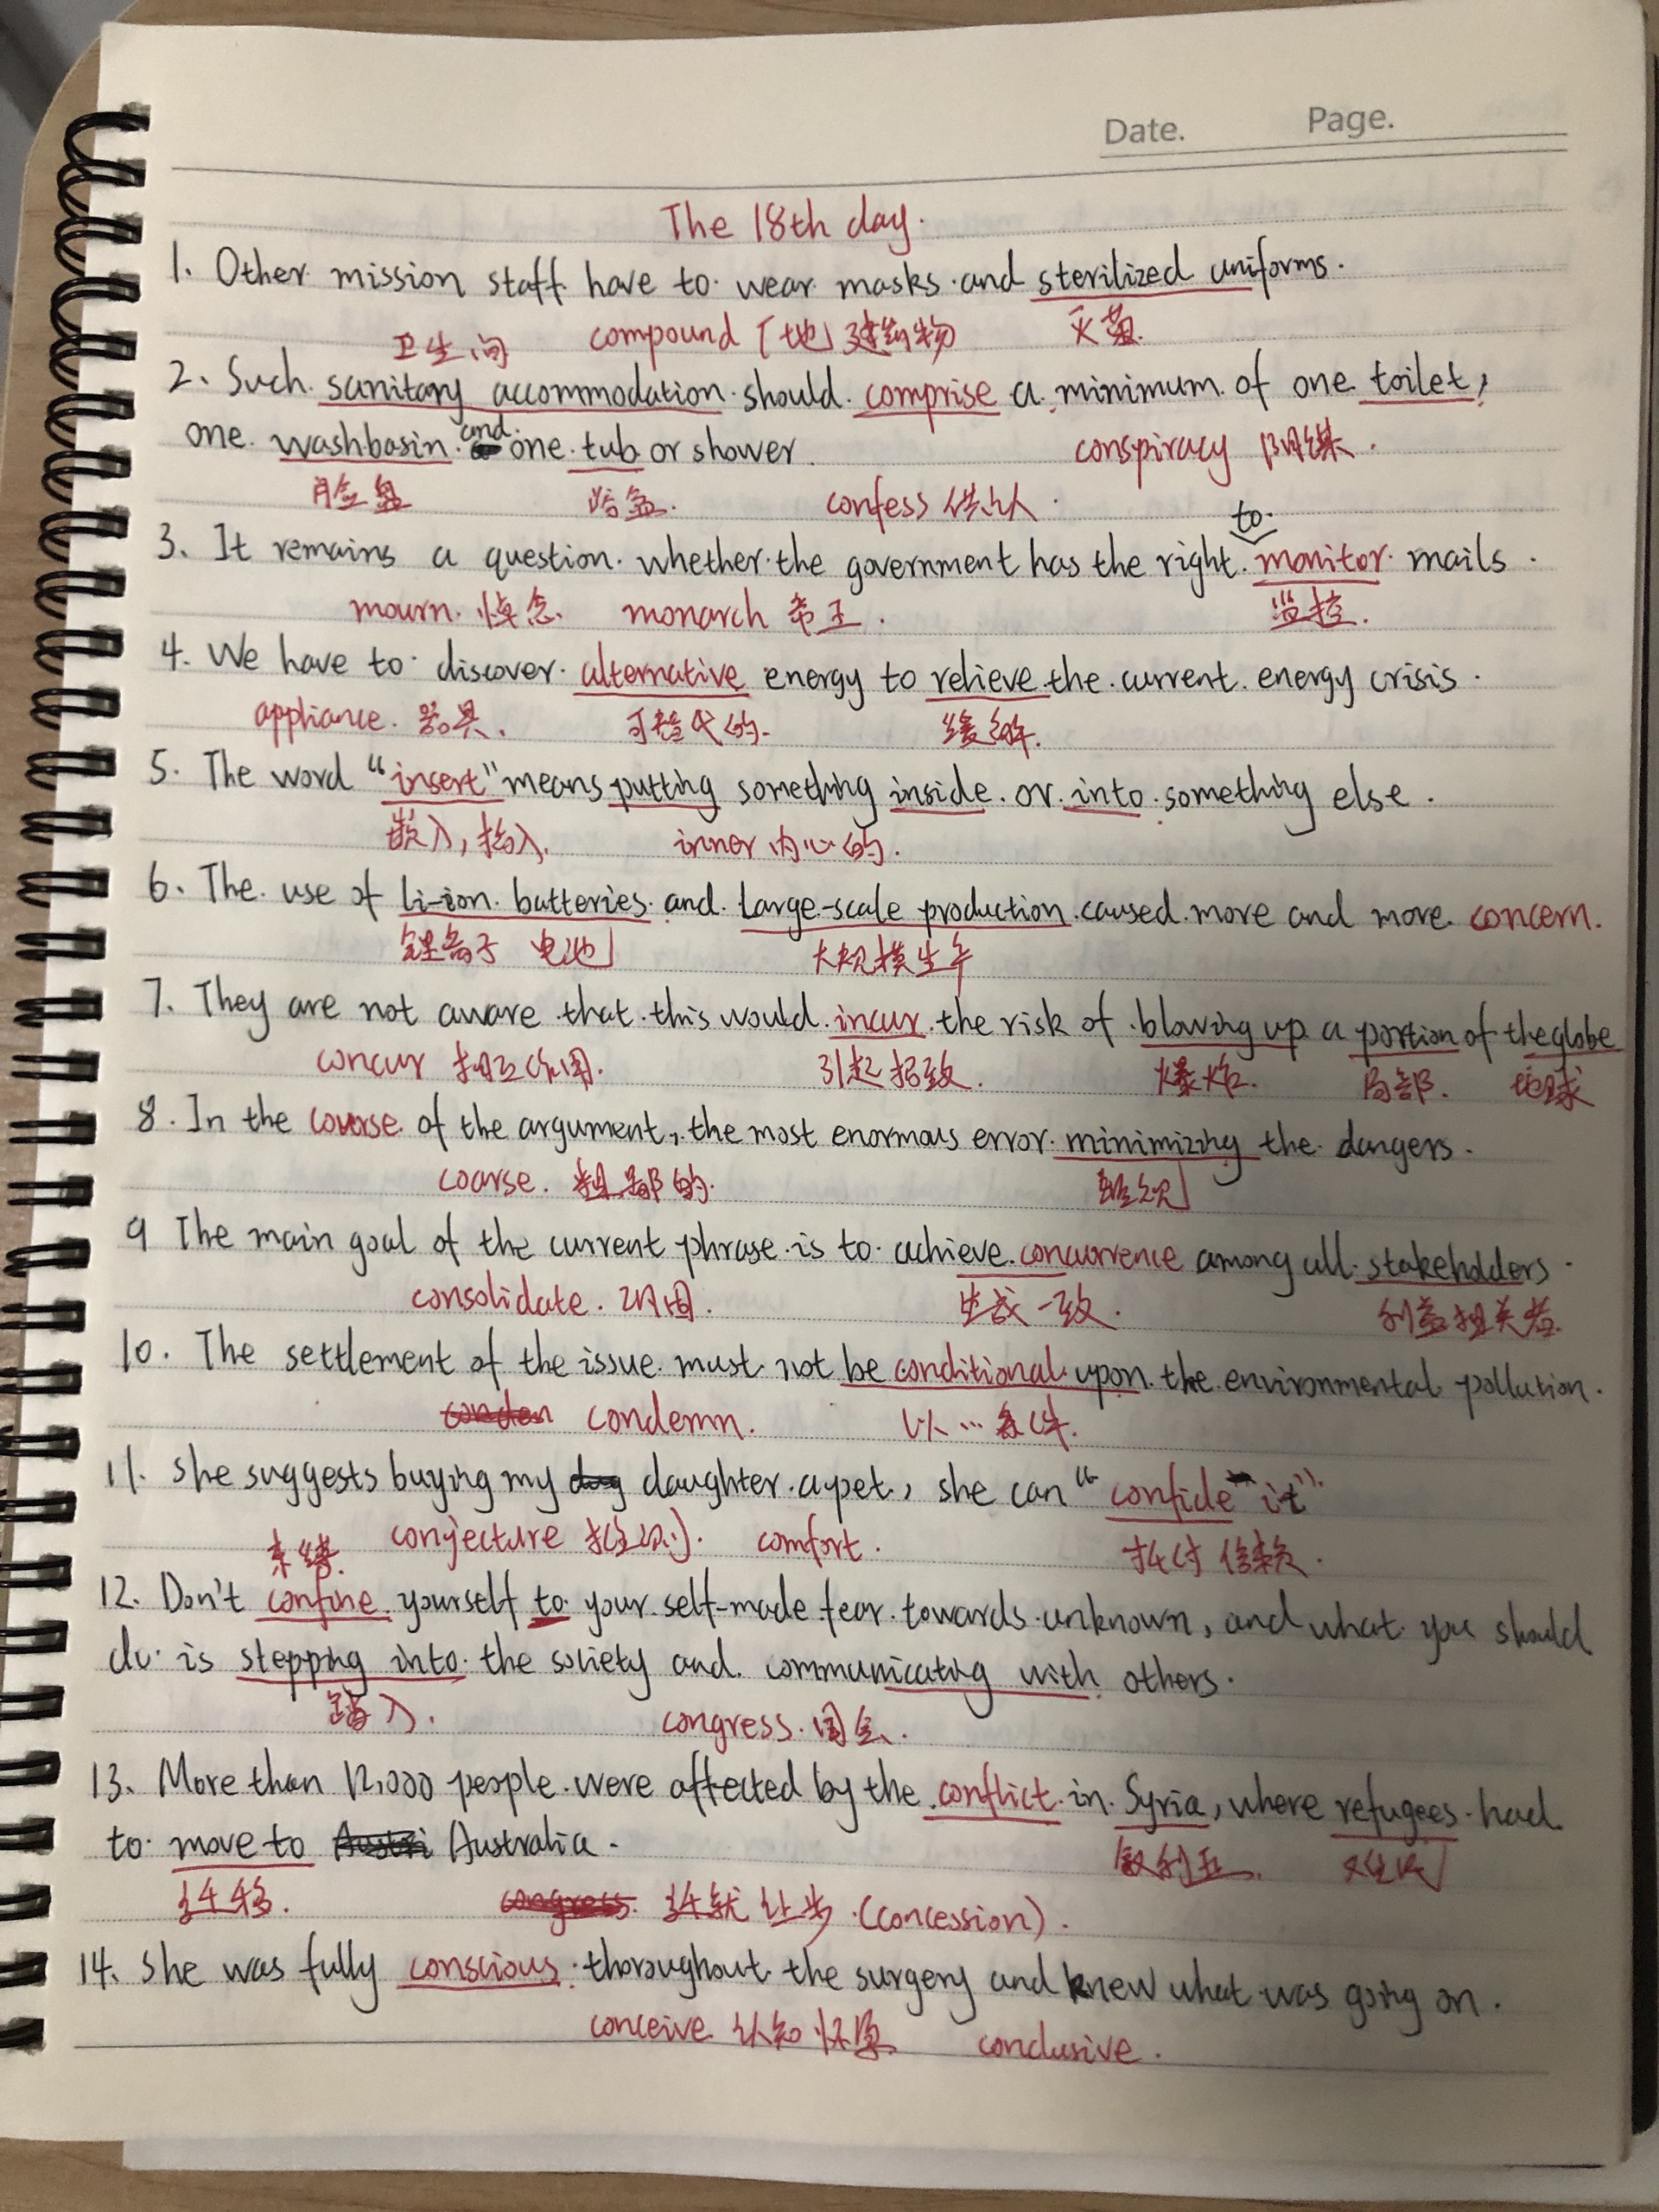 Date. Page.
The 18th day.
1. Other mission staff have to wear masks and sterilized uniforms.
卫生间 compound [地] 建筑物 灭菌
2. Such sanitary accommodation should comprise a minimum of one toilet,
one washbasin and one tub or shower. conspiracy 阴谋.
脸盆 浴盆. confess 供认.
to
3. It remains a question whether the government has the right monitor mails.
mourn. 悼念. monarch 帝王. 监控.
4. We have to discover alternative energy to relieve the current energy crisis.
appliance. 器具. 可替代的. 缓解.
5. The word "insert" means putting something inside or into something else.
嵌入, 插入. inner 内心的.
6. The use of li-ion batteries and large-scale production caused more and more concern.
锂离子 电池 大规模生产
7. They are not aware that this would incur the risk of blowing up a portion of the globe
concur 相互作用. 引起招致. 爆炸. 局部. 地球
8. In the course of the argument, the most enormous error minimizing the dangers.
coarse. 粗鄙的. 轻视
9 The main goal of the current phrase is to achieve concurrence among all stakeholders.
consolidate. 巩固. 达成一致. 利益相关者.
10. The settlement of the issue must not be conditional upon the environmental pollution.
condemn. 以…条件.
11. She suggests buying my daughter a pet, she can "confide it".
束缚. conjecture 推测. comfort. 托付 信赖.
12. Don't confine yourself to your self-made fear towards unknown, and what you should
do is stepping into the society and communicating with others.
踏入. congress. 国会.
13. More than 12,000 people were affected by the conflict in Syria, where refugees had
to move to Australia. 叙利亚. 难民
迁移. 迁就 让步. (concession).
14. She was fully conscious thoroughout the surgery and knew what was going on.
conceive 认知 怀孕 conclusive.